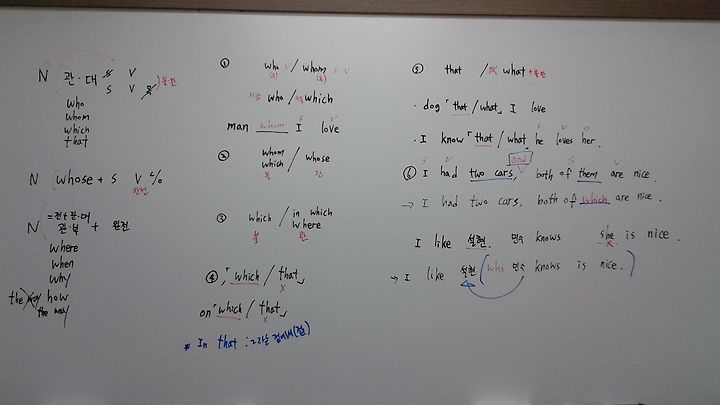 N 관·대 S V
S V 목 )불·완
who
whom
which
that
N (whose + S V %
완전
= 전+관·대
N 관·부 + 완전
where
when
why
the way how
the way
① who V / whom S V
(주) (목)
사람 who / 사물 which
S V
man whom I love
② whom
which / whose
불 완
③ which / in which
where
불 완
④ , 「which / that」
X
on 「which / that」
X
* In that :
⑤ that / what + 불완
· dog 「that / what」 I love
S V O
· I know 「that / what he loves her.
S V and S V
⑥ I had two cars, both of them are nice.
→ I had two cars, both of which are nice.
I like 설현. 민수 knows she is nice.
X
→ I like 설현 (who 민수 knows is nice.)